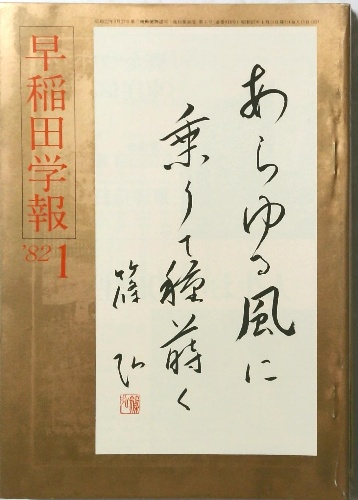 早稲田学報
'82 1
あらゆる風に
乗りて種蒔く
篠弘